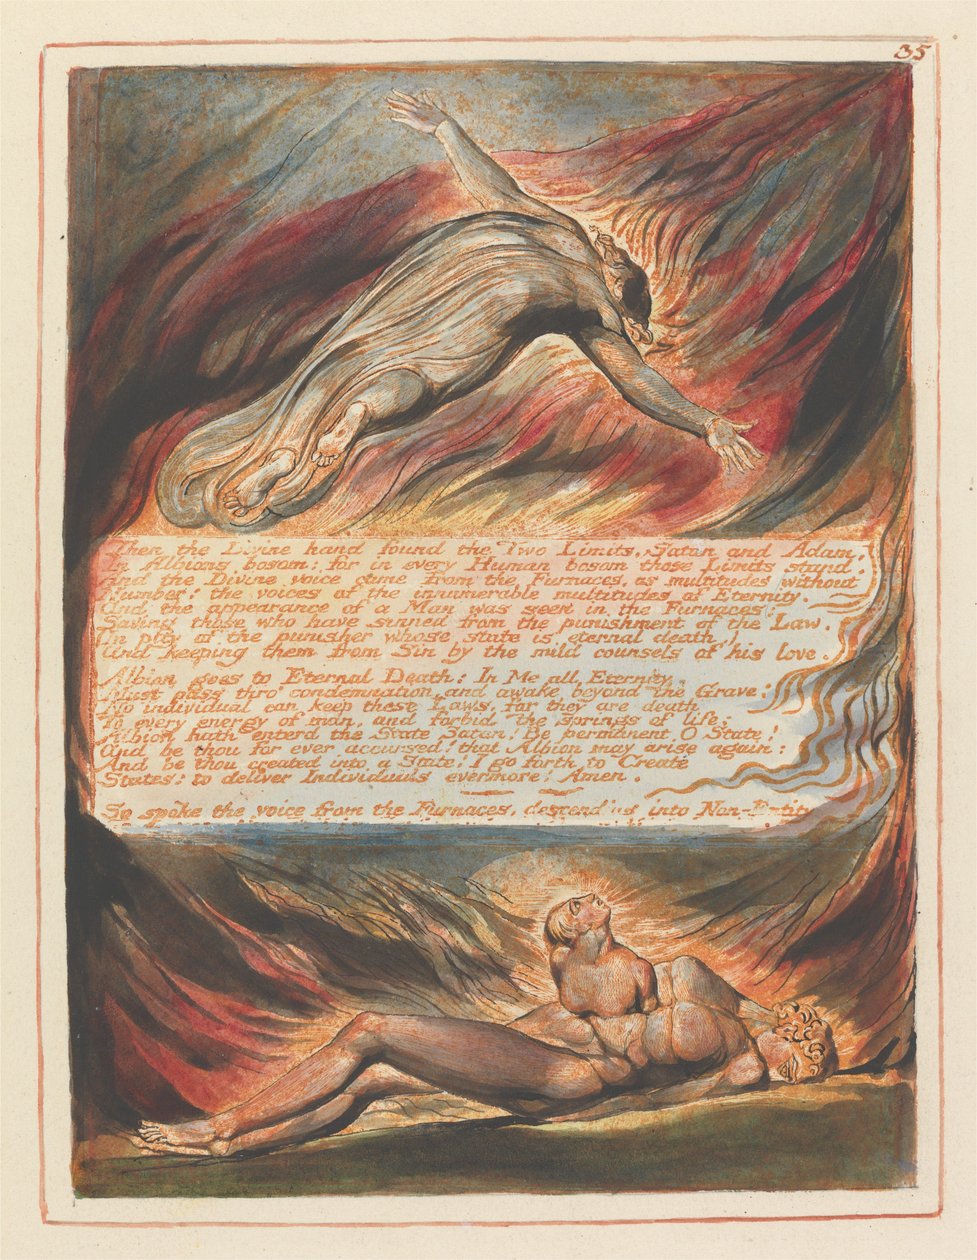 35
Then the Divine hand found the Two Limits, Satan and Adam,
In Albions bosom: for in every Human bosom those Limits stand.
And the Divine voice came from the Furnaces, as multitudes without
Number! the voices of the innumerable multitudes of Eternity.
And the appearance of a Man was seen in the Furnaces;
Saving those who have sinned from the punishment of the Law,
In pity of the punisher whose state is eternal death,)
And keeping them from Sin by the mild counsels of his love.
Albion goes to Eternal Death: In Me all Eternity.
Must pass thro' condemnation, and awake beyond the Grave:
No individual can keep these Laws, for they are death
To every energy of man, and forbid the springs of life;
Albion hath enterd the State Satan! Be permanent O State!
And be thou for ever accursed! that Albion may arise again:
And be thou created into a State! I go forth to Create
States: to deliver Individuals evermore! Amen.
So spoke the voice from the Furnaces, descending into Non-Entity